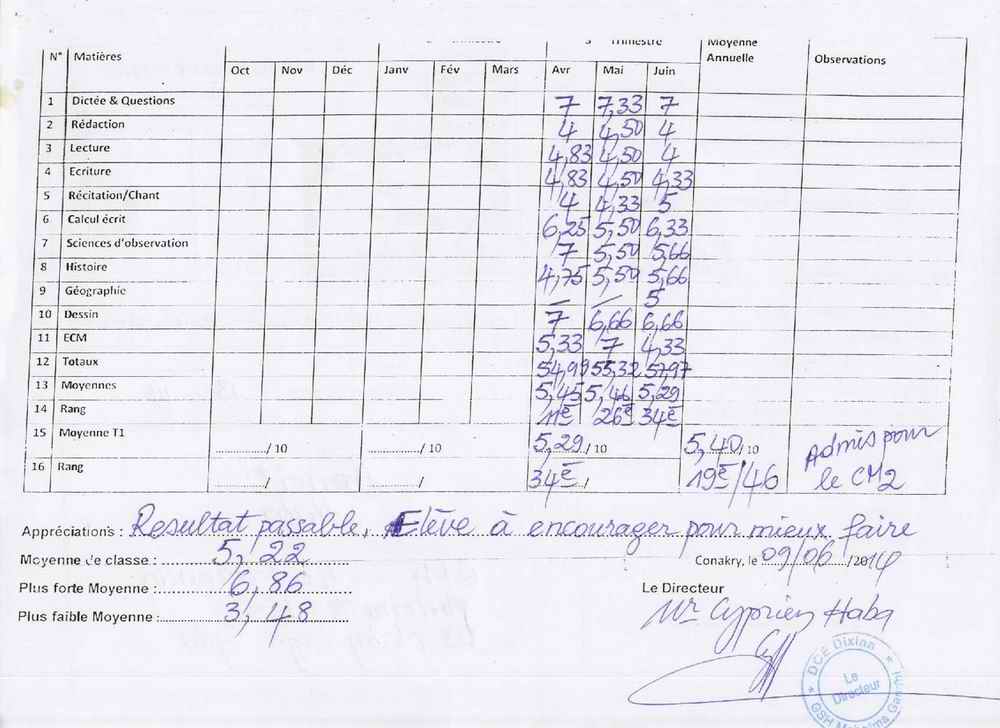 3 Trimestre Moyenne
N° Matières Annuelle Observations
Oct Nov Déc Janv Fév Mars Avr Mai Juin
1 Dictée & Questions 7 7,33 7
2 Rédaction 4 4,50 4
3 Lecture 4,83 4,50 4
4 Ecriture 4,83 4,50 4,33
5 Récitation/Chant 4 4,33 5
6 Calcul écrit 6,25 5,50 6,33
7 Sciences d'observation 7 5,50 5,66
8 Histoire 4,75 5,50 5,66
9 Géographie — — 5
10 Dessin 7 6,66 6,66
11 ECM 5,33 7 4,33
12 Totaux 54,99 55,32 57,97
13 Moyennes 5,45 5,46 5,29
14 Rang 11e 26e 34e
15 Moyenne T1 ............/ 10 ............/ 10 5,29 / 10 5,40 / 10 Admis pour
16 Rang 34e / 19e/46 le CM2
Appréciations : Resultat passable, Elève à encourager pour mieux faire
Moyenne de classe : 5,22 Conakry, le 09/06 /2014
Plus forte Moyenne : 6,86 Le Directeur
Plus faible Moyenne : 3,48 Mr Cyprien Haba
DCE Dixinn
Le
Directeur